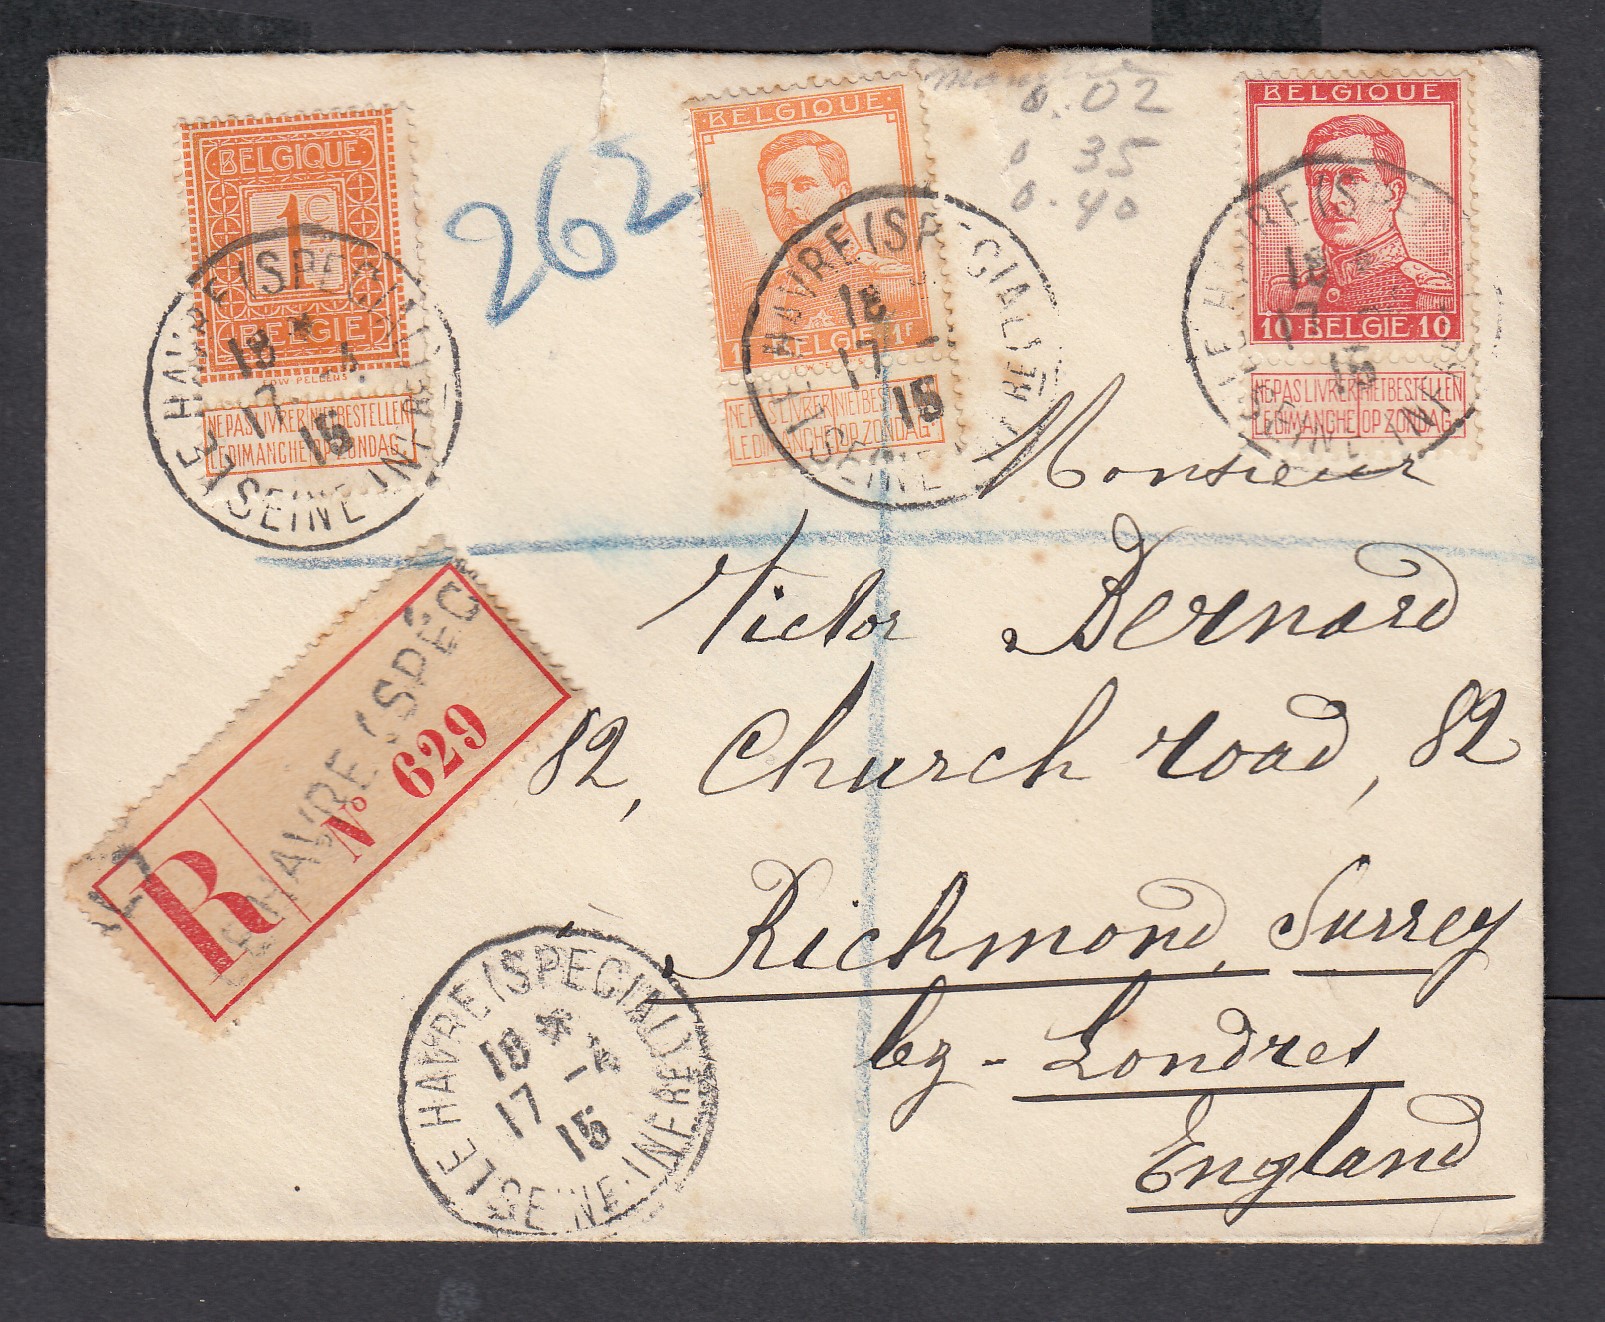 BELGIQUE
1c
BELGIË
NE PAS LIVRER NIET BESTELLEN
LE DIMANCHE OP ZONDAG
LE HAVRE (SPECIAL)
18 *
17 -4
15
SEINE-INFRE
262
BELGIQUE
1F BELGIE 1F
NE PAS LIVRER NIET BESTELLEN
LE DIMANCHE OP ZONDAG
LE HAVRE (SPECIAL)
18
17 -
15
SEINE INFRE
0.02
0.35
0.40
BELGIQUE
10 BELGIE 10
NE PAS LIVRER NIET BESTELLEN
LE DIMANCHE OP ZONDAG
LE HAVRE (SPE
18 *
17 -
15
SEINE-INF
Monsieur
Victor Bernard
82, Church road, 82
à Richmond, Surrey
by - Londres
England
LE HAVRE (SPEC
R No 629
LE HAVRE (SPECIAL)
18 *
17 -4
15
SEINE-INFRE